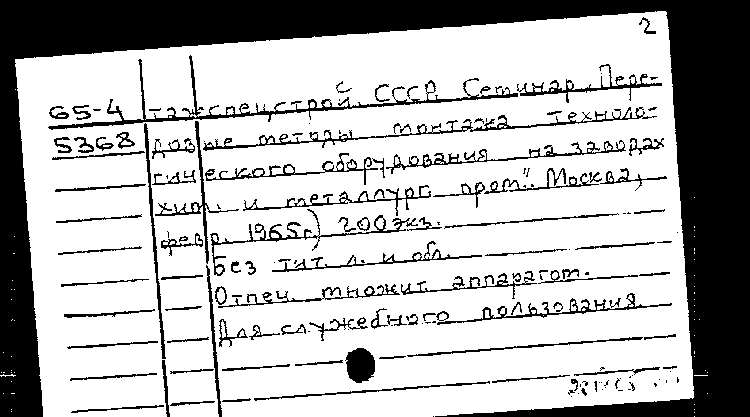 2
65-4 тажспецстрой. СССР. Семинар „Пере-
5368 довые методы монтажа техноло-
гического оборудования на заводах
хим. и металлург. пром". Москва,
февр. 1965г.) 200 экз.
Без тит. л. и обл.
Отпеч. множит. аппаратом.
Для служебного пользования.